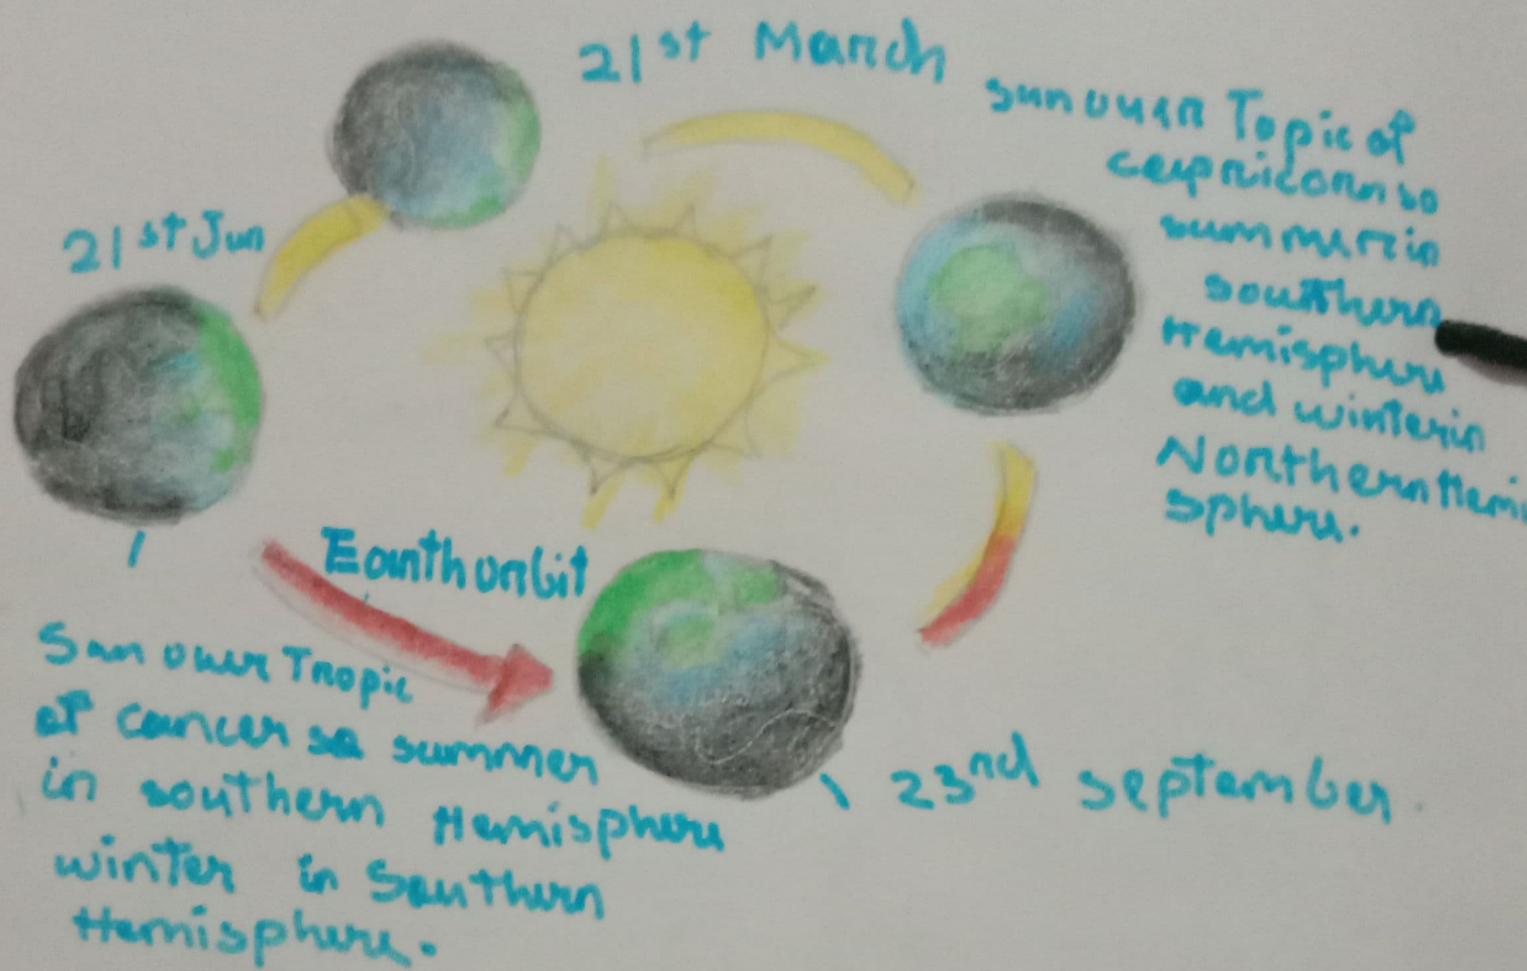 21st March
sun ouer Topic of
ceapricorn so
summer in
southern
Hemisphere
and winter in
Northern Hemi
sphere.
21st Jun
Earth orbit
Sun ouer Tropic
of cancer so summer
in southern Hemisphere
winter in Southern
Hemisphere.
23nd september